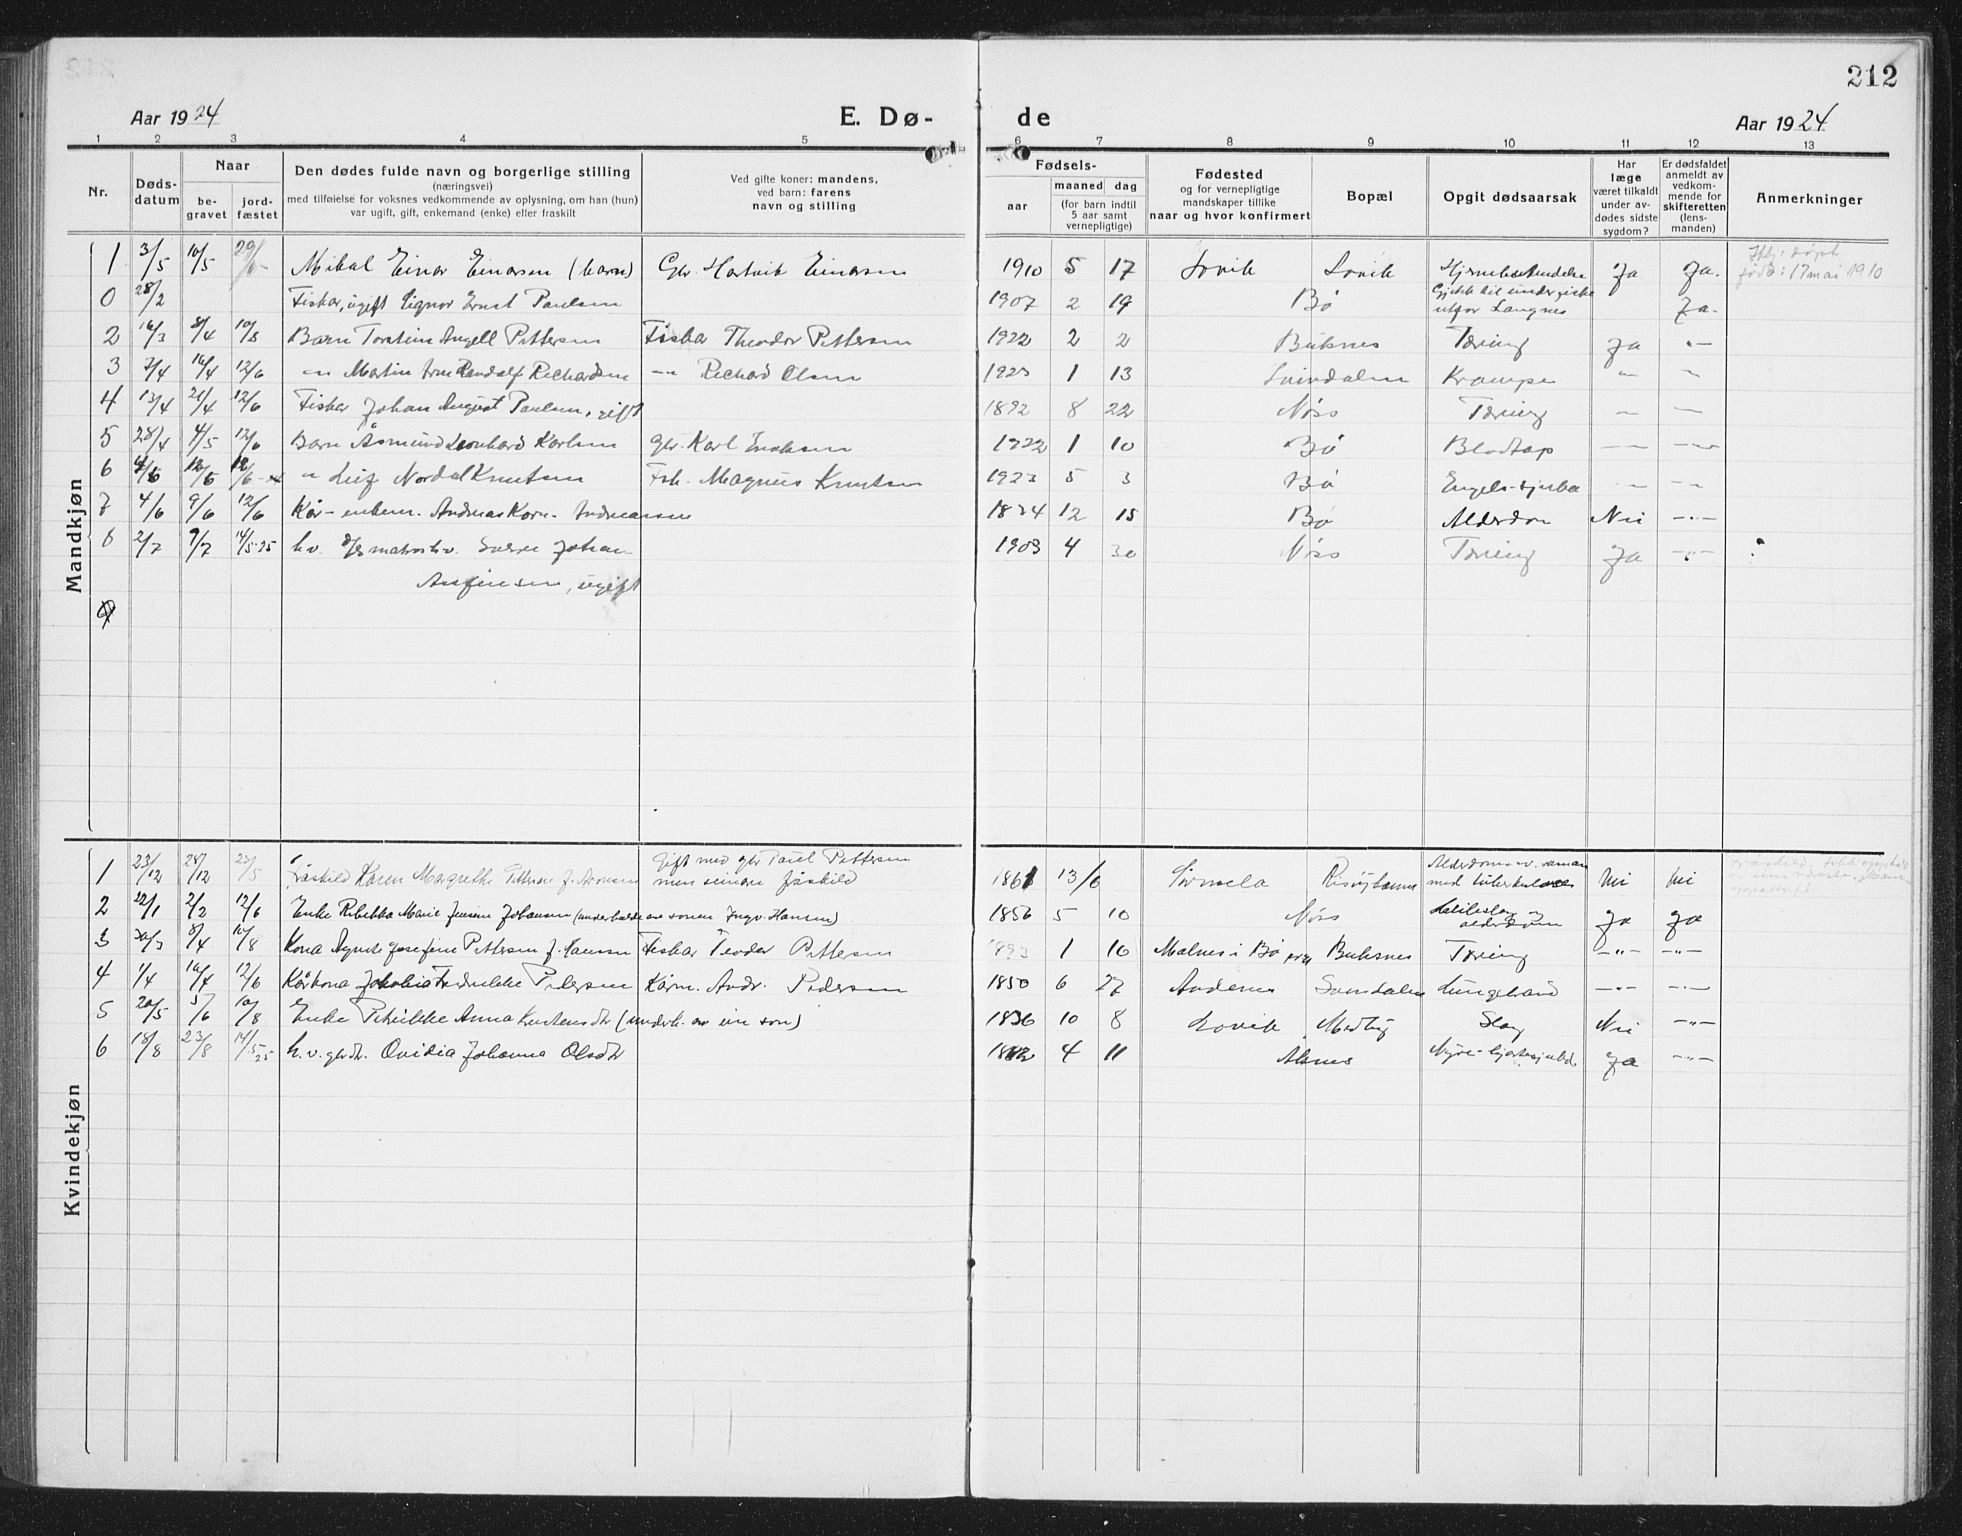 212
Aar 1924
E. Dø-
de
Aar 1924
1 2 3 4 5 6 7 8 9 10 11 12 13
Nr.
Døds-
datum
Naar
be-
gravet
jord-
fæstet
Den dødes fulde navn og borgerlige stilling
(næringsvei)
med tilføielse for voksnes vedkommende av oplysning, om han (hun)
var ugift, gift, enkemand (enke) eller fraskilt
Ved gifte koner: mandens,
ved barn: farens
navn og stilling
Fødsels-
aar
maaned dag
(for barn indtil
5 aar samt
vernepligtige)
Fødested
og for vernepligtige
mandskaper tillike
naar og hvor konfirmert
Bopæl
Opgit dødsaarsak
Har
læge
været tilkaldt
under av-
dødes sidste
sygdom?
Er dødsfaldet
anmeldt av
vedkom-
mende for
skifteretten
(lens-
manden)
Anmerkninger
Mandkjøn
1 3/5 10/5 29/6 Mikal Einar Einarsen (barn) Gbr. Hartvik Einarsen 1910 5 17 Lovik Lovik Ja Ja. født: 17 mai 1910
0 28/2 Fisker, ugift Signor Ernst Paulsen 1907 2 19 Bø utfor Langnes Ja.
2 16/3 8/4 10/8 Barn Torstein Angell Pettersen Fisker Theodor Pettersen 1922 2 2 Buksnes Tæring Ja -"-
3 7/4 16/4 12/6 -"- Martin Arne Randolf Richardsen -"- Richard Olsen 1923 1 13 Svindalen Krampe -"- -"-
4 13/4 21/4 12/6 Fisker Johan August Paulsen, gift 1892 8 22 Nøss Tæring -"- -"-
5 28/4 4/5 12/6 Barn Åsmund Leonhard Karlsen gbr. Karl Enoksen 1922 1 10 Bø Blodtap -"- -"-
6 12/6 -"- Leif Nordal Knutsen Fisk. Magnus Knutsen 1923 5 3 Bø Engelsk sjuka -"- -"-
7 4/6 9/6 12/6 Kår-enkem. Andreas Korn. Andreassen 1834 12 15 Bø Alderdom Nei -"-
8 2/7 9/7 14/5-25 h.v. matros h.v. Sverre Johan 1903 4 30 Nøss Tæring Ja -"-
, ugift
9
Kvindekjøn
1 23/12 28/12 22/5 Fråskild Karen Margrethe Pettersen f. Aronsen Gift med gbr Paul Pettersen
men seinare fråskild 1861 13/6 Sørmela Risøyhamn Alderdoms-sv. saman
med tuberkulose Nei Nei
2 22/1 2/2 12/6 Enke Rebekka Marie Jensine Johansen (underholdt av sonen Ingv. Hansen) 1856 5 10 Nøss alderdom Ja Ja
3 30/3 8/4 10/8 Kona Agnete Josefine Pettersen f. Hansen Fisker Teodor Pettersen 1893 1 16 Malnes i Bø prg Buksnes Tæring -"- -"-
4 1/4 16/4 12/6 Kårkona Jakobia Fredrikke Pedersen Kårm. Andr. Pedersen 1850 6 27 Andenes Svindalen Lungebrand -"- -"-
5 20/5 5/6 10/8 Enke Petrikke Anna Knutensdtr (underh. av ein son) 1836 10 8 Lovik Medby Slag Nei -"-
6 18/8 23/8 14/5-25 h.v. gbrdtr. Ovidia Johanna Olsdtr 4 11 Alsnes Nyre-hjertesjukd. Ja -"-